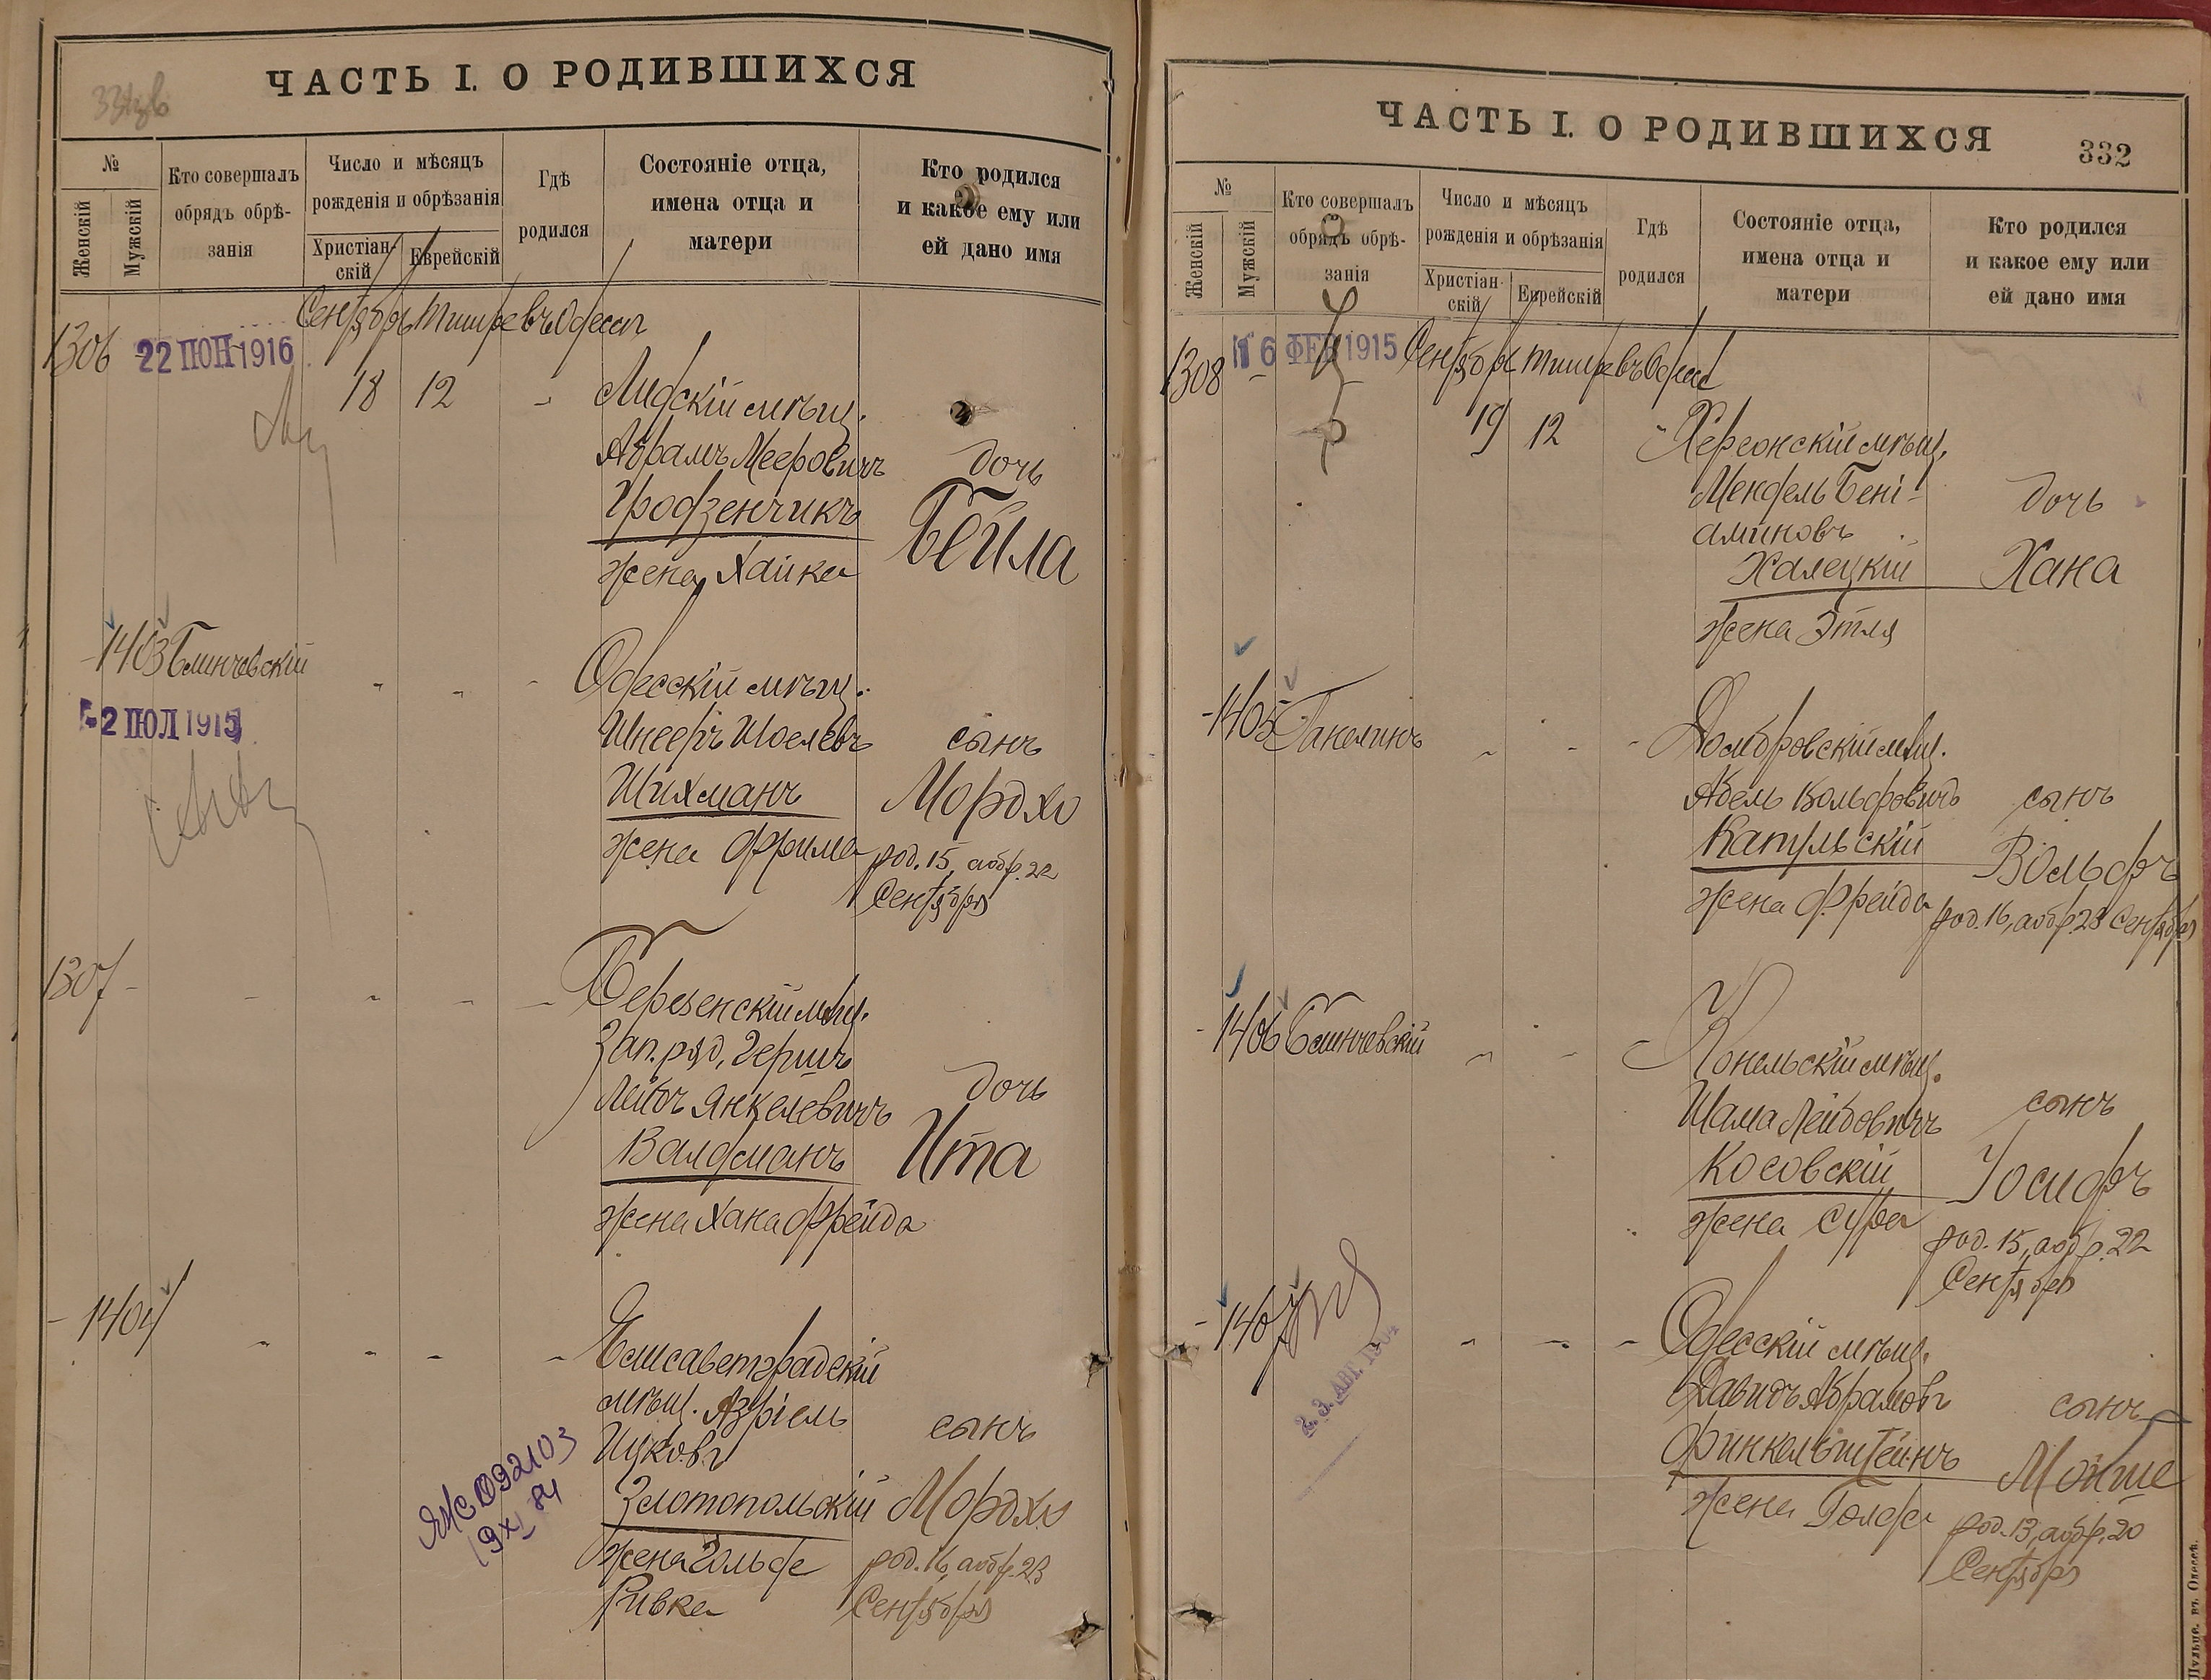 ЧАСТЬ I. О РОДИВШИХСЯ
№
Женскій
Мужскій
Кто совершалъ
обрядъ обрѣ-
занія
Число и мѣсяцъ
рожденія и обрѣзанія
Христіан-
скій
Еврейскій
Гдѣ
родился
Состояніе отца,
имена отца и
матери
Кто родился
и какое ему или
ей дано имя
Сентябрь Тишре въ Одессѣ
1306
22 ІЮН 1916
18 12 - Лидскій мѣщ.
Абрамъ Мееровичъ дочь
Гродзенчикъ Бейла
жена Хайка
1403 Блинчевскій
- - - Одесскій мѣщ.
2 ІЮЛ 1915
Шнееръ Шоелевъ сынъ
Шихманъ Мордхо
жена Фрима род. 15, аобр. 22
Сентября
1307 - - - - - Березенскій мѣщ.
Зап. ряд. Гершъ
Лейбъ Янкелевичъ дочь
Валдманъ Ита
жена Хана Фрейда
- 1404 - - - - Елисаветградскій
мѣщ. Азріель
Ицковъ сынъ
Золотопольскій Мордхо
жена Гольде род. 16, аобр. 23
Ривка Сентября
ЯЖС 092103
19 XI 84
ЧАСТЬ I. О РОДИВШИХСЯ
332
№
Женскій
Мужскій
Кто совершалъ
обрядъ обрѣ-
занія
Число и мѣсяцъ
рожденія и обрѣзанія
Христіан-
скій
Еврейскій
Гдѣ
родился
Состояніе отца,
имена отца и
матери
Кто родился
и какое ему или
ей дано имя
Сентябрь Тишре въ Одессѣ
1308 -
16 ФЕВ 1915
19 12 - Херсонскій мѣщ.
Мендель Бені-
аминовъ дочь
Халецкій Хана
жена Этля
- 1405 Ганелинъ - - - Домбровскій мѣщ.
Абель Вольфовичъ сынъ
Катульскій Вольфъ
жена Фрейда род. 16, аобр. 23 Сентября
- 1406 Блинчевскій - - - Конельскій мѣщ.
Шама Лейбовичъ сынъ
Косовскій Іосифъ
жена Сура род. 15, аобр. 22
Сентября
- 1407 - - - Одесскій мѣщ.
Давидъ Абрамовъ сынъ
Финкельштейнъ Мойше
жена Голда род. 13, аобр. 20
Сентября